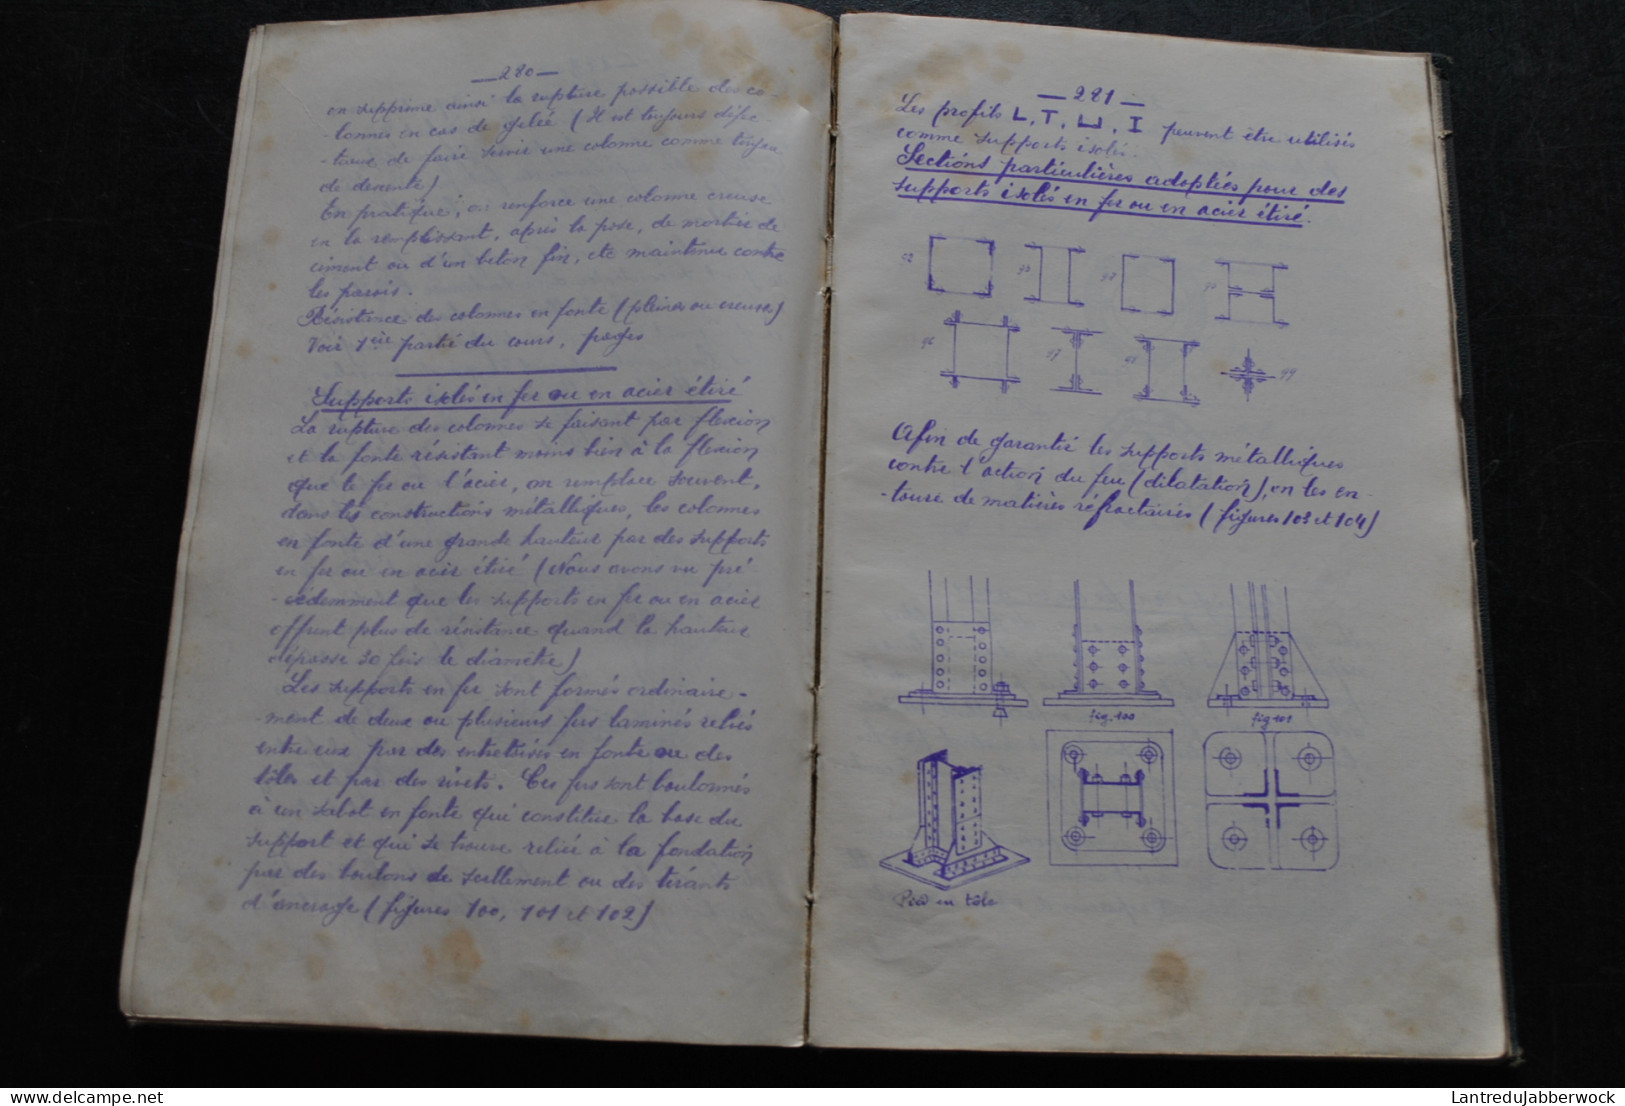 — 280 —
on supprime ainsi la rupture possible des co-
-lonnes en cas de gelée (Il est toujours défec-
-tueux de faire servir une colonne comme tuyau
de descente)
En pratique, on renforce une colonne creuse
en la remplissant, après la pose, de mortier de
ciment ou d'un béton fin, etc maintenu contre
les parois.
Résistance des colonnes en fonte (pleines ou creuses)
Voir 1ière partie du cours, pages
Supports isolés en fer ou en acier étiré
La rupture des colonnes se faisant par flexion
et la fonte résistant moins bien à la flexion
que le fer ou l'acier, on remplace souvent,
dans les constructions métalliques, les colonnes
en fonte d'une grande hauteur par des supports
en fer ou en acier étiré (Nous avons vu pré
-cédemment que les supports en fer ou en acier
offrent plus de résistance quand la hauteur
dépasse 30 fois le diamètre)
Les supports en fer sont formés ordinaire-
-ment de deux ou plusieurs fers laminés reliés
entre eux par des entretoises en fonte ou des
tôles et par des rivets. Ces fers sont boulonnés
à un sabot en fonte qui constitue la base du
support et qui se trouve relié à la fondation
par des boulons de scellement ou des tirants
d'ancrage (figures 100, 101 et 102)
— 281 —
Les profils L, T, ⊔, I peuvent être utilisés
comme supports isolés.
Sections particulières adoptées pour des
supports isolés en fer ou en acier étiré.
92 93 94 95
96 97 98 99
Afin de garantir les supports métalliques
contre l'action du feu (dilatation), on les en-
-toure de matières réfractaires (figures 103 et 104)
fig. 100 fig 101
Pied en tôle
LantreduJabberwock